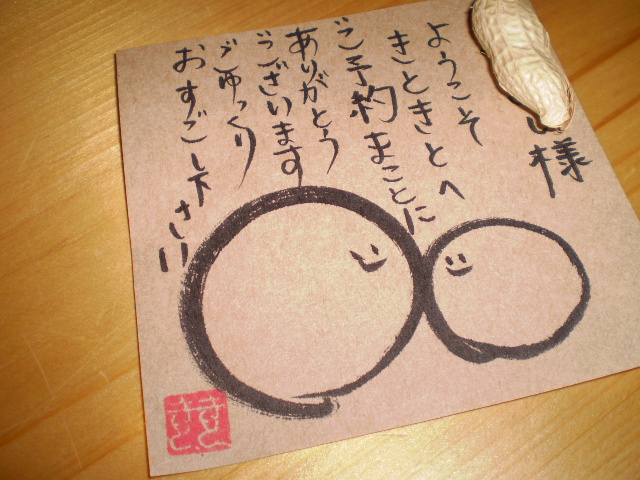 様
ようこそ
きときとへ
ご予約まことに
ありがとう
ございます
ごゆっくり
おすごし下さい